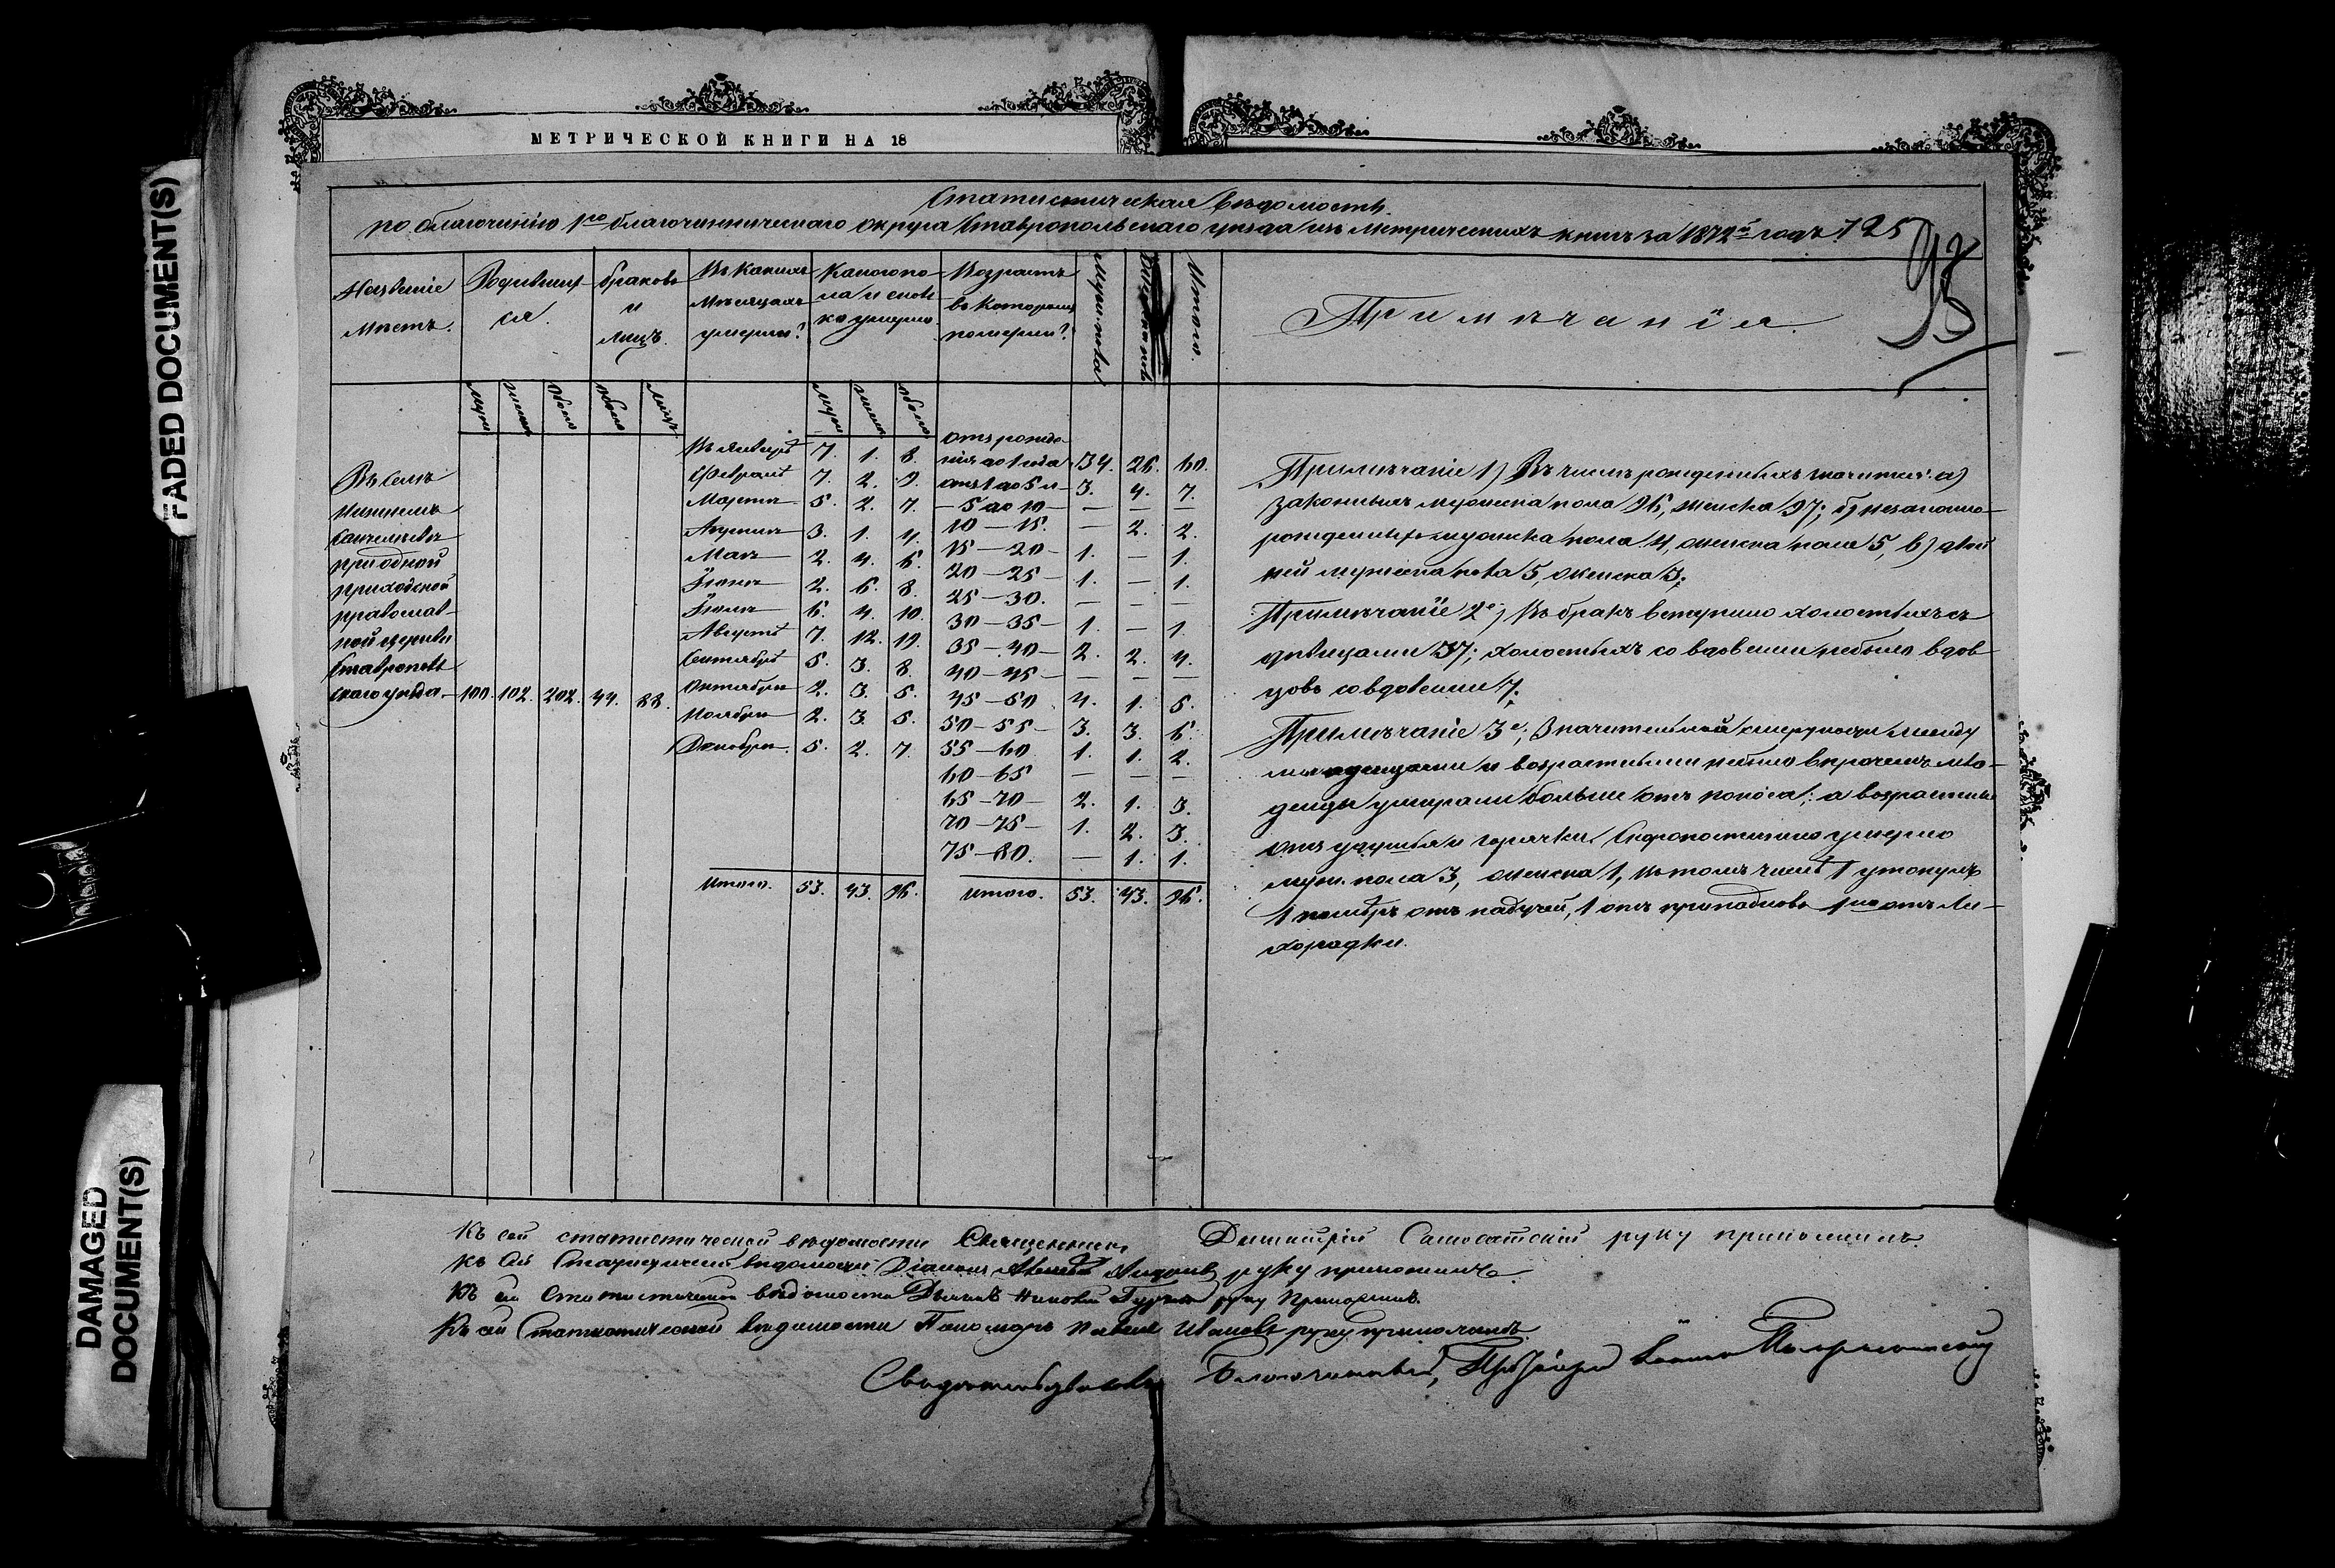 FADED DOCUMENT(S)
DAMAGED DOCUMENT(S)
МЕТРИЧЕСКОЙ КНИГИ НА 18
Статистическая Вѣдомость
по благочинію 1го благочинническаго округа Ставропольскаго уѣзда изъ Метрическихъ книгъ за 1872й годъ. 125
98
Названіе Мѣстъ.
Родившихся.
браковъ и лицъ.
Въ какихъ Мѣсяцахъ умерли?
Какого пола и сколько умерло.
Возрастъ въ которомъ померли?
Мужскова
Женскаго
Итого.
Примѣчанія.
Муж Женск Обоего Обоего Лицъ
Муж Женск Обоего
Въ селѣ
Нижнемъ
Санчелѣевѣ
при одной
приходской
православ-
ной церкви
Ставрополь
скаго уѣзда 100. 102. 202. 44. 88.
Въ Январѣ 7. 1. 8.
Февралѣ 7. 2. 9.
Мартѣ 5. 2. 7.
Апрѣлѣ 3. 1. 4.
Маѣ 2. 4. 6.
Іюнѣ 2. 6. 8.
Іюлѣ 6. 4. 10.
Августѣ 7. 12. 19.
Сентябрѣ 5. 3. 8.
Октябрѣ 2. 3. 5.
Ноябрѣ 2. 3. 5.
Декабрѣ 5. 2. 7.
Итого. 53. 43. 96.
отъ рожде-
нія до 1 года 34. 26. 60.
отъ 1 до 5 л 3. 4. 7.
5 до 10 — — —
10 — 15. — 2. 2.
15 — 20 1. — 1.
20 — 25 1. — 1.
25 — 30. — — —
30 — 35 1. — 1.
35 — 40 2. 2. 4.
40 — 45 — — —
45 — 50 4. 1. 5.
50 — 55 3. 3. 6.
55 — 60 1. 1. 2.
60 — 65 — — —
65 — 70 2. 1. 3.
70 — 75 1. 2. 3.
75 — 80. — 1. 1.
Итого. 53. 43. 96.
Примѣчаніе 1) Въ числѣ рожденныхъ значится: а)
законныхъ мужеска пола 96, женска 97; б) незаконно-
рожденныхъ мужеска пола 4, женска пола 5, в) двой
ней мужеска пола 5, женска 3;
Примѣчаніе 2е) Въ бракъ вступило холостыхъ съ
дѣвицами 37; холостыхъ со вдовами небыло вдов
цовъ со вдовами 7;
Примѣчаніе 3е, Значительной смертности между
младенцами и возрастными небыло впрочемъ мла-
денцы умирали больше отъ поноса; а возрастные
отъ удушья и горячки. Скоропостижно умерло
муж. пола 3, женска 1, въ томъ числѣ 1 утонулъ
1 померъ отъ падучей, 1 отъ припадковъ 1 отъ Ли-
хорадки.
Къ сей статистической вѣдомости Священникъ Димитрій Самосатскій руку приложилъ.
Къ сей Статистической вѣдомости Діаконъ руку приложилъ.
Къ сей Статистической вѣдомости Дьячекъ руку приложилъ.
Къ сей Статистической вѣдомости Пономарь Иванов руку приложилъ.
Свидѣтельствовалъ Благочинный,